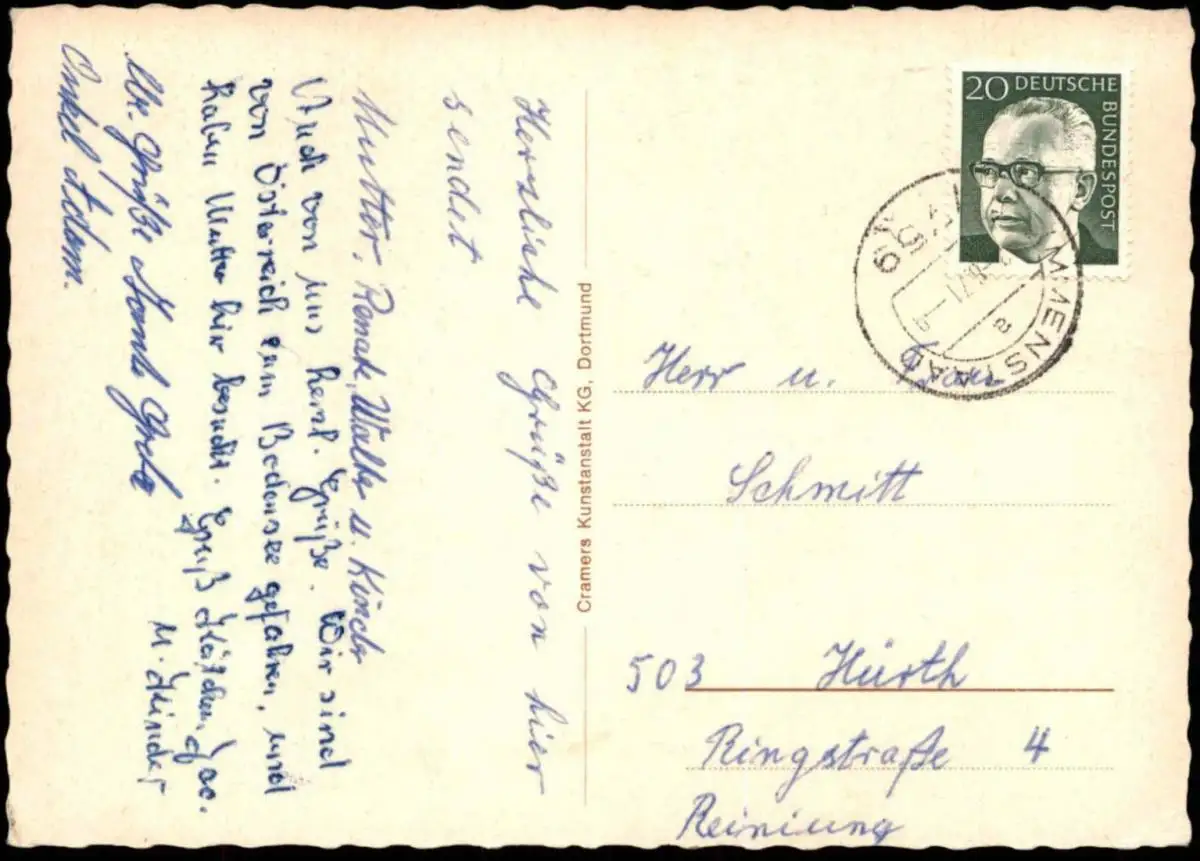 Herzliche Grüße von hier
sendet
Mutter, Renate, Walter u. Kinder
Auch von uns Herzl. Grüße. Wir sind
von Österreich zum Bodensee gefahren, und
haben Mutter hier besucht. Gruß Kätchen,
u. Kinder
Grüße Tante Grete
Onkel Adam.
Cramers Kunstanstalt KG, Dortmund
20 DEUTSCHE
BUNDESPOST
MMENSTAAD
Herr u. Frau
Schmitt
503 Hürth
Ringstraße 4
Reiniung